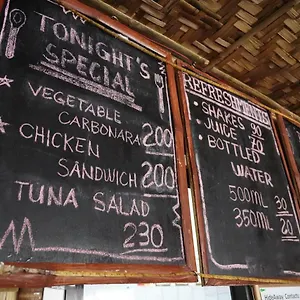 TONIGHT'S
SPECIAL
VEGETABLE
CARBONARA 200
CHICKEN
SANDWICH 200
TUNA SALAD
230
REFRESHMENTS
• SHAKES 90
• JUICE 70
• BOTTLED
WATER
500ML 30
350ML 20